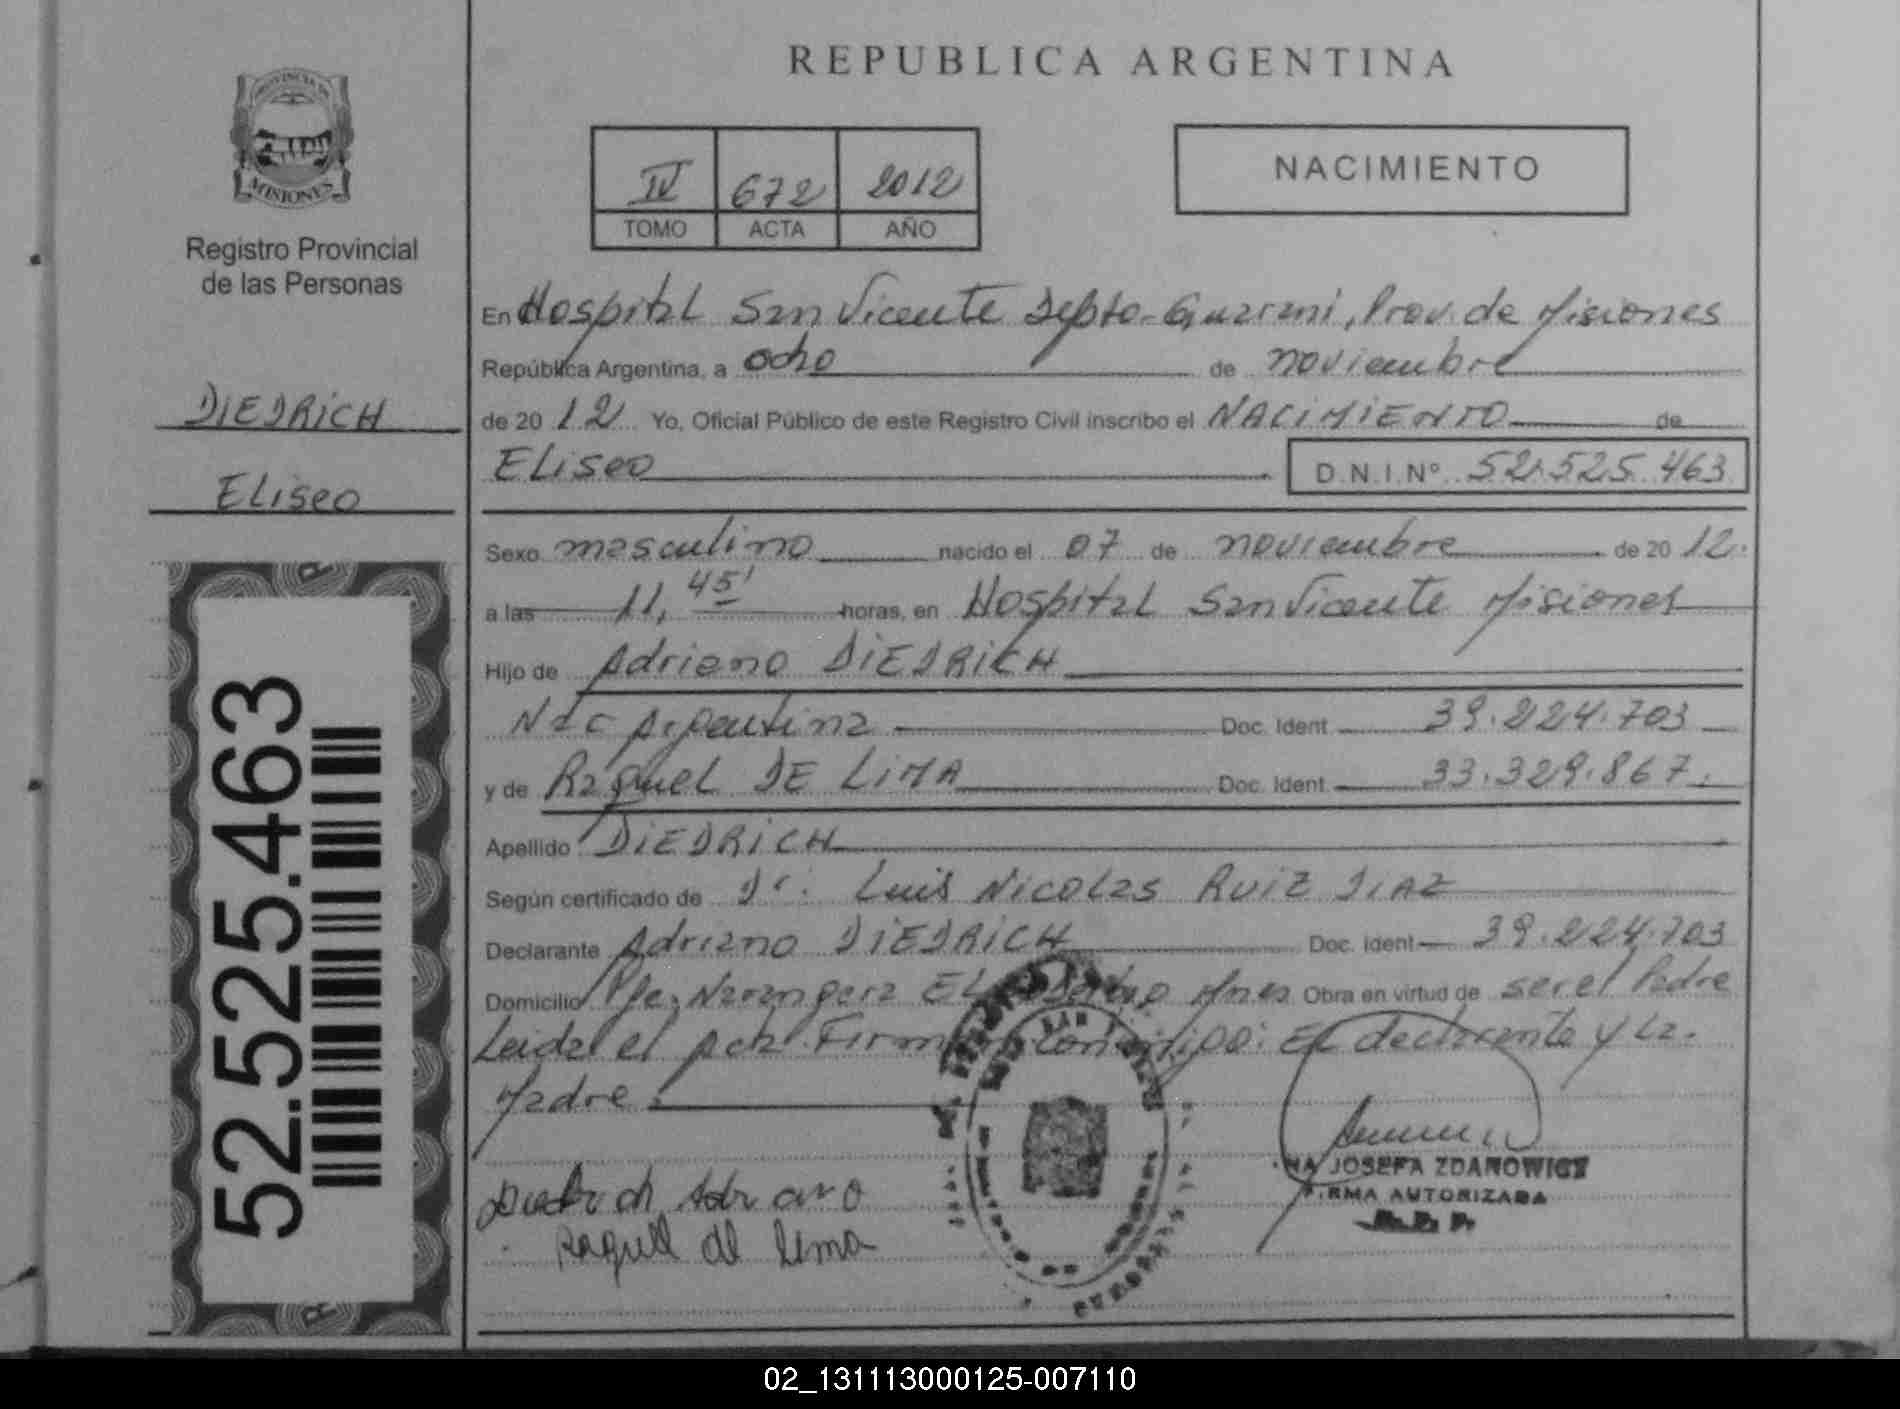 REPUBLICA ARGENTINA
PROVINCIA DE
MISIONES
Registro Provincial
de las Personas
DIEDRICH
ELISEO
52.525.463
IV 672 2012
TOMO ACTA AÑO
NACIMIENTO
En Hospital San Vicente Depto. Guarani, Prov. de Misiones
República Argentina, a ocho de noviembre
de 2012 Yo, Oficial Público de este Registro Civil inscribo el NACIMIENTO de
ELISEO D.N.I.Nº 52.525.463
Sexo masculino nacido el 07 de noviembre de 2012.
a las 11,45' horas, en Hospital San Vicente Misiones
Hijo de Adriano DIEDRICH
Nac Argentina Doc. Ident 39.224.703
y de Raquel DE LIMA Doc. Ident 33.329.867.
Apellido DIEDRICH
Según certificado de Dr. Luis Nicolas Ruiz Diaz
Declarante Adriano DIEDRICH Doc. Ident 39.224.703
Domicilio Pje. Narangera EL Mnes Obra en virtud de ser el Padre
Leida el acta Firman conmigo: El declarante y La
Madre
Diedrich Adriano
Raquel de lima
JOSEFA ZDANOWICZ
FIRMA AUTORIZADA
R. P. P.
02_131113000125-007110